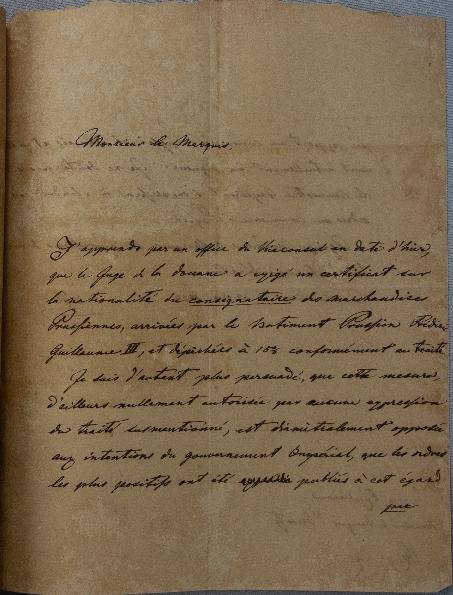 Monsieur le Marquis.
J'apprends par un office du Viceconsul en date d'hier,
que le Juge de la douane a exigé un certificat sur
la nationalité du consignataire des marchandises
Prussiennes, arrivées par le batiment Prussien Fréderic
Guillaume III, et dépêchées à 15% conformément au traité.
Je suis d'autant plus persuadé, que cette mesure,
d'ailleurs nullement autorisée par aucune expression
du traité susmentionné, est diamétralement opposée
aux intentions du gouvernement Impérial, que les ordres
les plus positifs ont été publiés à cet égard
par